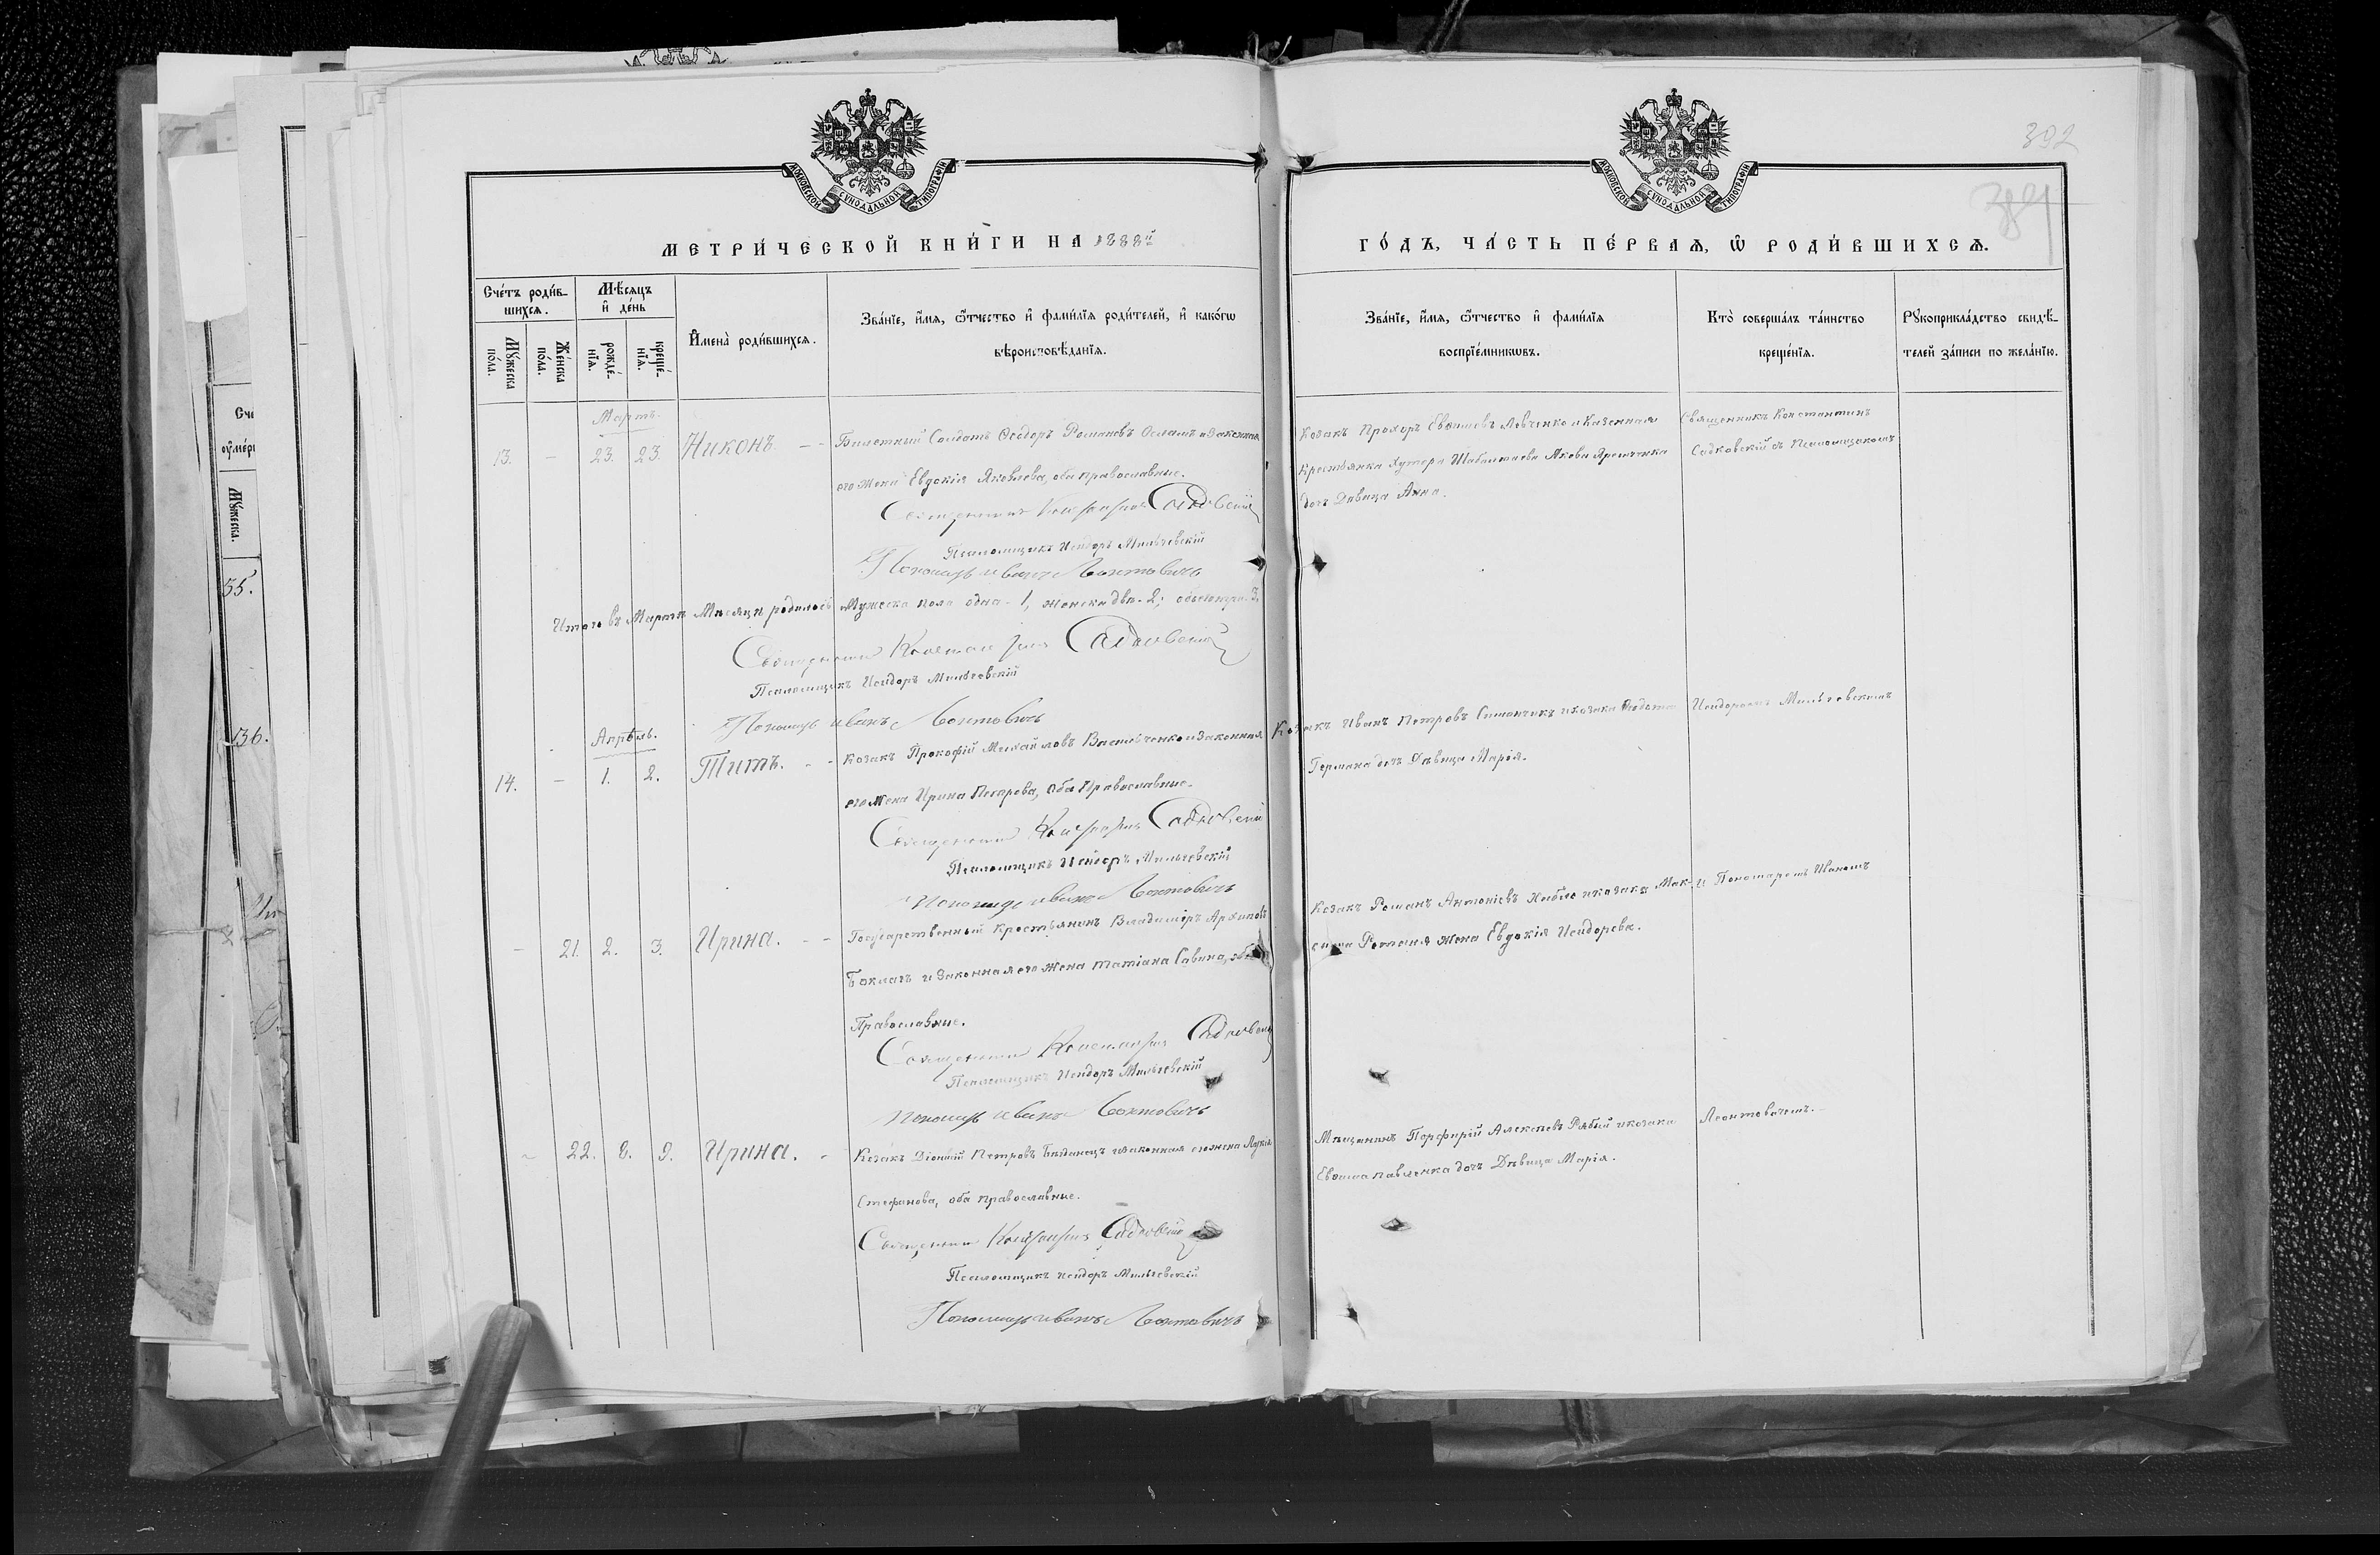 392
384
МОСКОВСКОЙ СѴНОДАЛЬНОЙ ТИПОГРАФІИ
МОСКОВСКОЙ СѴНОДАЛЬНОЙ ТИПОГРАФІИ
МЕТРИ́ЧЕСКОЙ КНИ́ГИ НА 1888й
ГО́ДЪ, ЧА́СТЬ ПЕ́РВАѦ, Ѽ РОДИ́ВШИХСѦ.
Сче́тъ роди́в-
шихсѧ.
Мꙋ́жеска по́ла.
Же́нска по́ла.
Мѣ́сѧцъ
и҆ де́нь
рожде́-нїѧ.
креще́-нїѧ.
И҆мена̀ роди́вшихсѧ.
Зва́нїе, и҆́мѧ, ѻ҆́тчество и҆ фами́лїѧ роди́телей, и҆ како́гѡ
вѣроисповѣ́данїѧ.
Зва́нїе, и҆́мѧ, ѻ҆́тчество и҆ фами́лїѧ
воспрїе́мникѡвъ.
Кто̀ соверша́лъ та́инство
креще́нїѧ.
Рꙋкоприкла́дство свидѣ́-
телей за́писи по жела́нїю.
Мартъ.
13. — 23. 23. Никонъ. — Билетный Солдатъ Ѳеодоръ Романовъ и законная
его жена Евдокія Яковлева, оба православные.
Священникъ Константинъ Садковскій
Псаломщикъ Исидоръ Мильчевскій
Пономарь Иванъ Леонтовичъ
Козакъ Прохоръ Левченко и казенная
Крестьянка хутора Якова Яремченка
дочь Дѣвица Анна.
Священникъ Константинъ
Садковскій съ Псаломщикомъ
Итого въ Мартѣ Мѣсяцѣ родилось Мужеска пола одна - 1, женска двѣ - 2; обоего три 3.
Священникъ Константинъ Садковскій
Псаломщикъ Исидоръ Мильчевскій
Пономарь Иванъ Леонтовичъ
Апрѣль.
14. — 1. 2. Титъ. — Козакъ Прокофій Михайловъ Васильченко и законная
его жена Ирина Петрова, оба Православные.
Священникъ Константинъ Садковскій
Псаломщикъ Исидоръ Мильчевскій
Пономарь Иванъ Леонтовичъ
Козакъ Иванъ Петровъ Симончикъ и козака
Германа дочь Дѣвица Марія.
Исидоромъ Мильчевскимъ
— 21. 2. 3. Ирина. — Государственный Крестьянинъ Владиміръ Архиповъ
Боклагъ и законная его жена Татіана Савина, оба
Православные.
Священникъ Константинъ Садковскій
Псаломщикъ Исидоръ Мильчевскій
Пономарь Иванъ Леонтовичъ
Козакъ Романъ Антоніевъ и козака Мак-
сима жена Евдокія Исидорова.
и Пономаремъ Иваномъ
— 22. 8. 9. Ирина. — Козакъ Діонисій Петровъ и законная его жена
Стефанова, оба православные.
Священникъ Константинъ Садковскій
Псаломщикъ Исидоръ Мильчевскій
Пономарь Иванъ Леонтовичъ
Мѣщанинъ Порфирій Алексѣевъ Рябый и козака
Павленка дочь Дѣвица Марія.
Леонтовичемъ.
Сче
ᲂу҆ме́рш
Мꙋ́жеска.
55.
136.